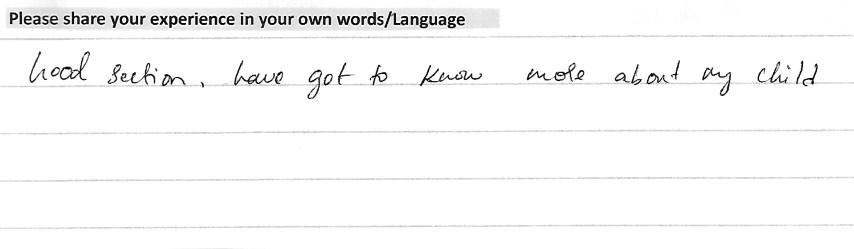 Please share your experience in your own words/Language
hood section, have got to know more about my child